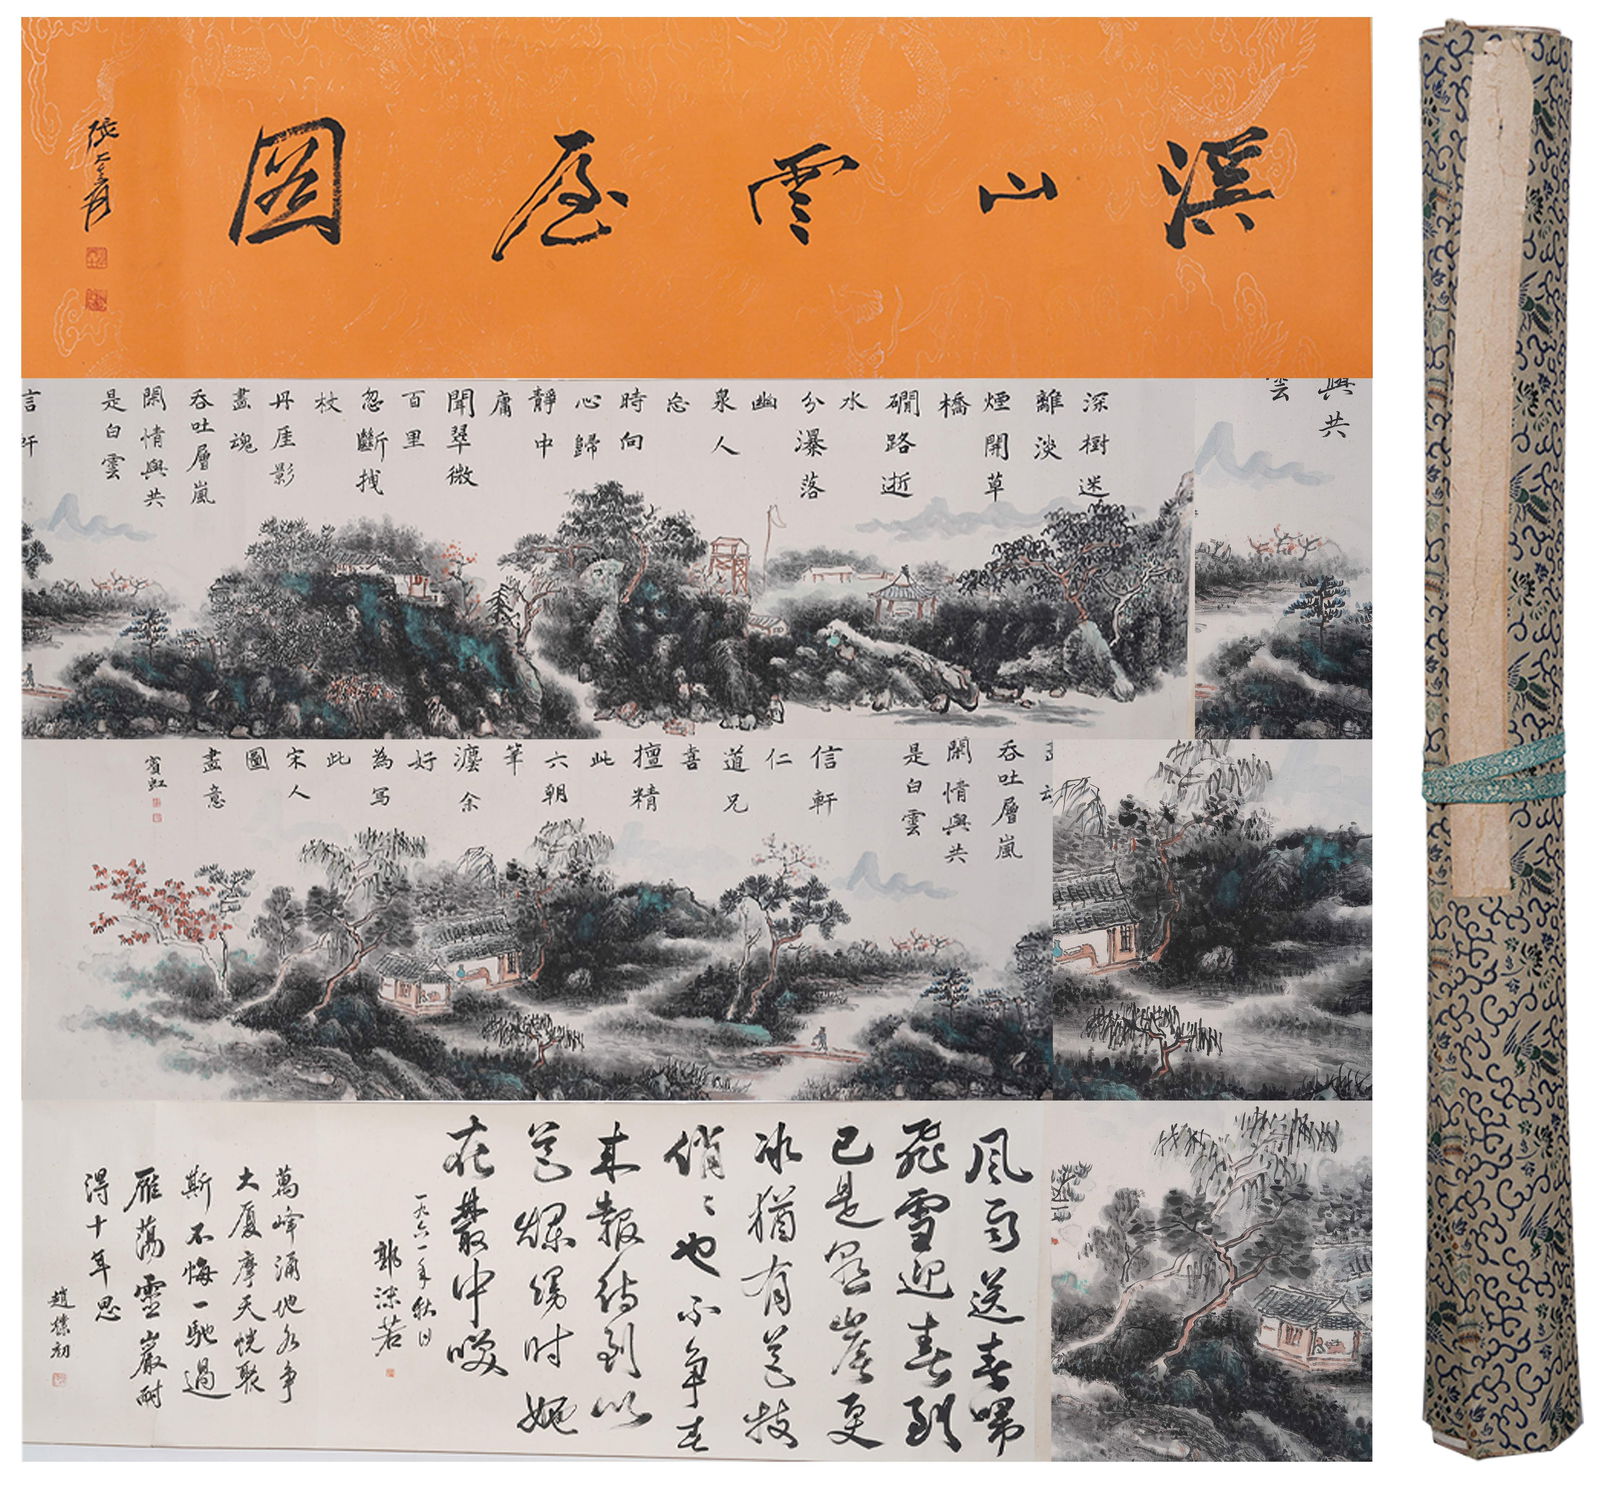 溪山雲屋圖
張大千
與共
雲
深樹迷
離淡
煙開草
橋
磵路逝
水
分瀑落
幽
泉人
忘
時向
心歸
靜中
庸
聞翠微
百里
忽斷拽
杖
丹厓影
畫魂
吞吐層嵐
閑情與共
是白雲
吞吐層嵐
閑情與共
是白雲
信軒
仁
道兄
喜
擅精
此
六朝
筆
瀍余
好
為寫
此
宋人
圖
畫意
賓虹
風雨送春歸
飛雪迎春到
已是懸崖百丈
冰猶有花枝
俏〻也不爭春
来報待到山
花爛熳时她
在叢中笑
一九六一年秋日
郭沫若
萬峰涌地各爭
大廈摩天恍聚
斯不悔一馳過
雁蕩靈巖耐
得十年思
趙樸初